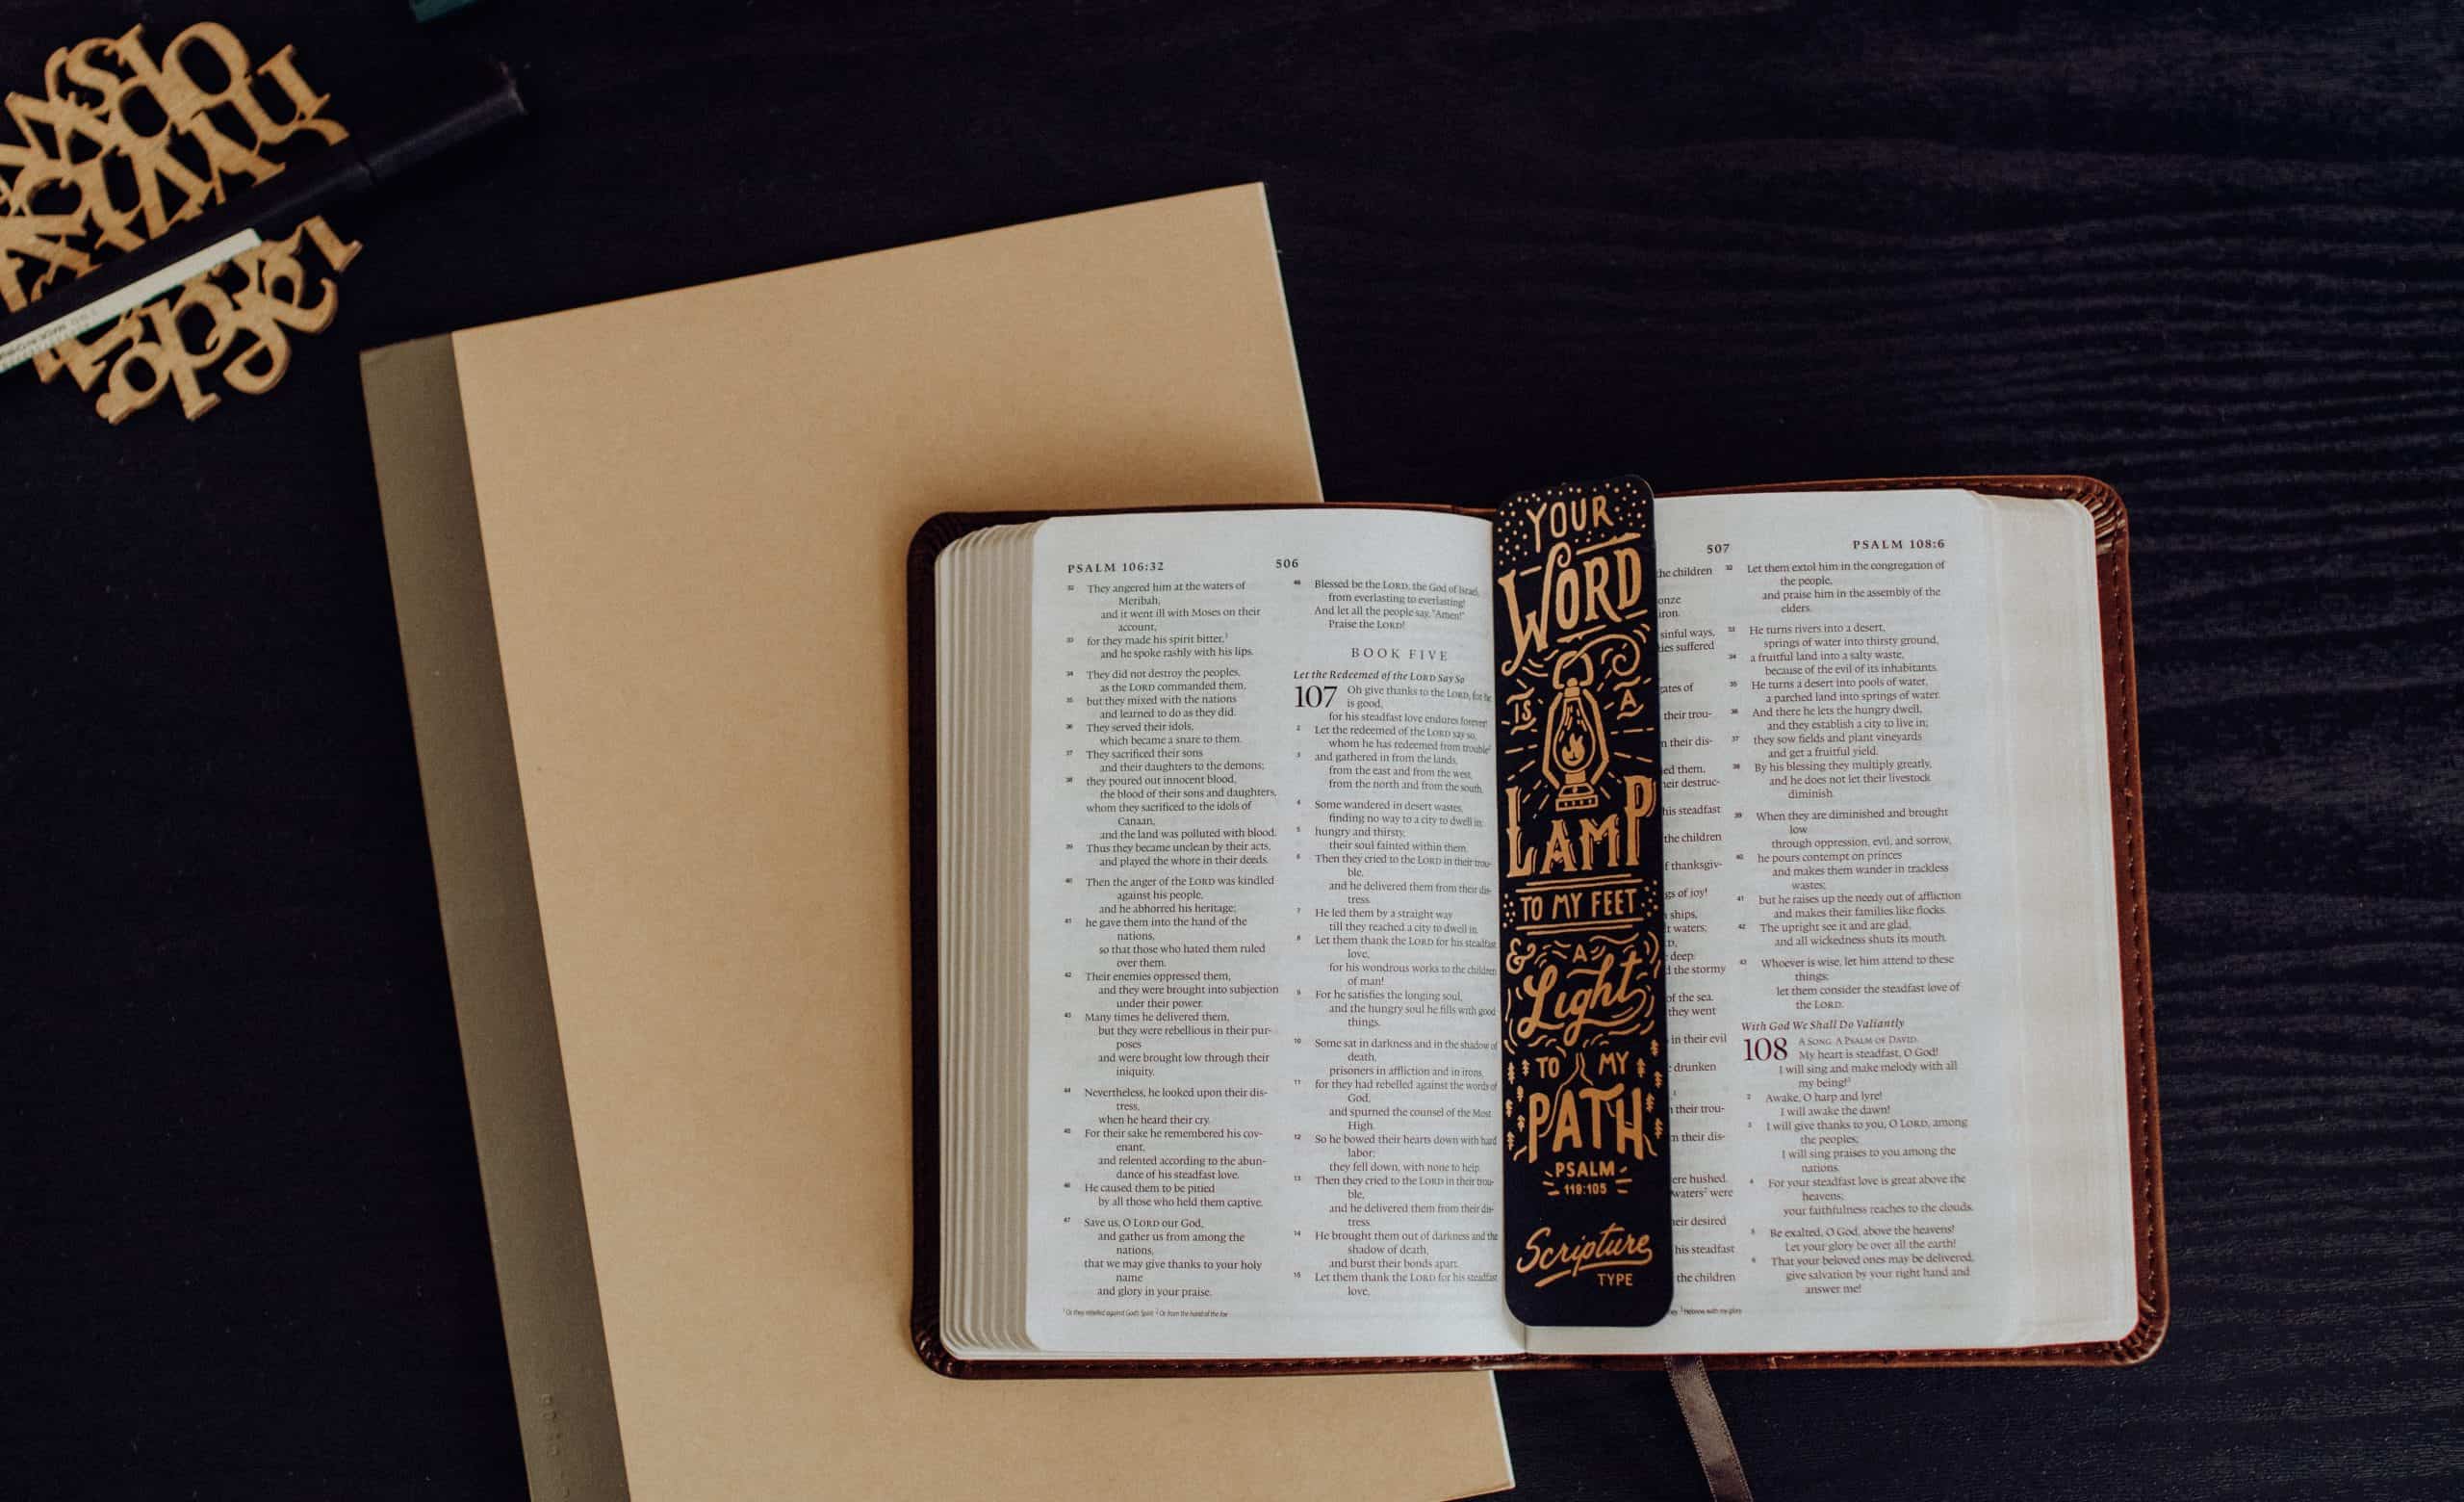 PSALM 106:32
506
32 They angered him at the waters of
Meribah,
and it went ill with Moses on their
account,
33 for they made his spirit bitter,1
and he spoke rashly with his lips.
34 They did not destroy the peoples,
as the LORD commanded them,
35 but they mixed with the nations
and learned to do as they did.
36 They served their idols,
which became a snare to them.
37 They sacrificed their sons
and their daughters to the demons;
38 they poured out innocent blood,
the blood of their sons and daughters,
whom they sacrificed to the idols of
Canaan,
and the land was polluted with blood.
39 Thus they became unclean by their acts,
and played the whore in their deeds.
40 Then the anger of the LORD was kindled
against his people,
and he abhorred his heritage;
41 he gave them into the hand of the
nations,
so that those who hated them ruled
over them.
42 Their enemies oppressed them,
and they were brought into subjection
under their power.
43 Many times he delivered them,
but they were rebellious in their pur-
poses
and were brought low through their
iniquity.
44 Nevertheless, he looked upon their dis-
tress,
when he heard their cry.
45 For their sake he remembered his cov-
enant,
and relented according to the abun-
dance of his steadfast love.
46 He caused them to be pitied
by all those who held them captive.
47 Save us, O LORD our God,
and gather us from among the
nations,
that we may give thanks to your holy
name
and glory in your praise.
48 Blessed be the LORD, the God of Israel,
from everlasting to everlasting!
And let all the people say, "Amen!"
Praise the LORD!
BOOK FIVE
Let the Redeemed of the LORD Say So
107 Oh give thanks to the LORD, for he
is good,
for his steadfast love endures forever!
2 Let the redeemed of the LORD say so,
whom he has redeemed from trouble2
3 and gathered in from the lands,
from the east and from the west,
from the north and from the south.
4 Some wandered in desert wastes,
finding no way to a city to dwell in;
5 hungry and thirsty,
their soul fainted within them.
6 Then they cried to the LORD in their trou-
ble,
and he delivered them from their dis-
tress.
7 He led them by a straight way
till they reached a city to dwell in.
8 Let them thank the LORD for his steadfast
love,
for his wondrous works to the children
of man!
9 For he satisfies the longing soul,
and the hungry soul he fills with good
things.
10 Some sat in darkness and in the shadow of
death,
prisoners in affliction and in irons,
11 for they had rebelled against the words of
God,
and spurned the counsel of the Most
High.
12 So he bowed their hearts down with hard
labor;
they fell down, with none to help.
13 Then they cried to the LORD in their trou-
ble,
and he delivered them from their dis-
tress.
14 He brought them out of darkness and the
shadow of death,
and burst their bonds apart.
15 Let them thank the LORD for his steadfast
love,
1 Or they rebelled against God's Spirit 2 Or from the hand of the foe
YOUR
WORD
IS A
LAMP
TO MY FEET
& A
Light
TO MY
PATH
PSALM
119:105
Scripture
TYPE
507
PSALM 108:6
the children
onze
iron.
sinful ways,
ies suffered
gates of
their trou-
n their dis-
ed them,
eir destruc-
his steadfast
the children
f thanksgiv-
gs of joy!
ships,
t waters;
D,
deep.
d the stormy
of the sea.
they went
in their evil
drunken
their trou-
n their dis-
ere hushed.
waters2 were
eir desired
his steadfast
the children
32 Let them extol him in the congregation of
the people,
and praise him in the assembly of the
elders.
33 He turns rivers into a desert,
springs of water into thirsty ground,
34 a fruitful land into a salty waste,
because of the evil of its inhabitants.
35 He turns a desert into pools of water,
a parched land into springs of water.
36 And there he lets the hungry dwell,
and they establish a city to live in;
37 they sow fields and plant vineyards
and get a fruitful yield.
38 By his blessing they multiply greatly,
and he does not let their livestock
diminish.
39 When they are diminished and brought
low
through oppression, evil, and sorrow,
40 he pours contempt on princes
and makes them wander in trackless
wastes;
41 but he raises up the needy out of affliction
and makes their families like flocks.
42 The upright see it and are glad,
and all wickedness shuts its mouth.
43 Whoever is wise, let him attend to these
things;
let them consider the steadfast love of
the LORD.
With God We Shall Do Valiantly
108 A SONG. A PSALM OF DAVID.
My heart is steadfast, O God!
I will sing and make melody with all
my being!3
2 Awake, O harp and lyre!
I will awake the dawn!
3 I will give thanks to you, O LORD, among
the peoples;
I will sing praises to you among the
nations.
4 For your steadfast love is great above the
heavens;
your faithfulness reaches to the clouds.
5 Be exalted, O God, above the heavens!
Let your glory be over all the earth!
6 That your beloved ones may be delivered,
give salvation by your right hand and
answer me!
3 Hebrew with my glory